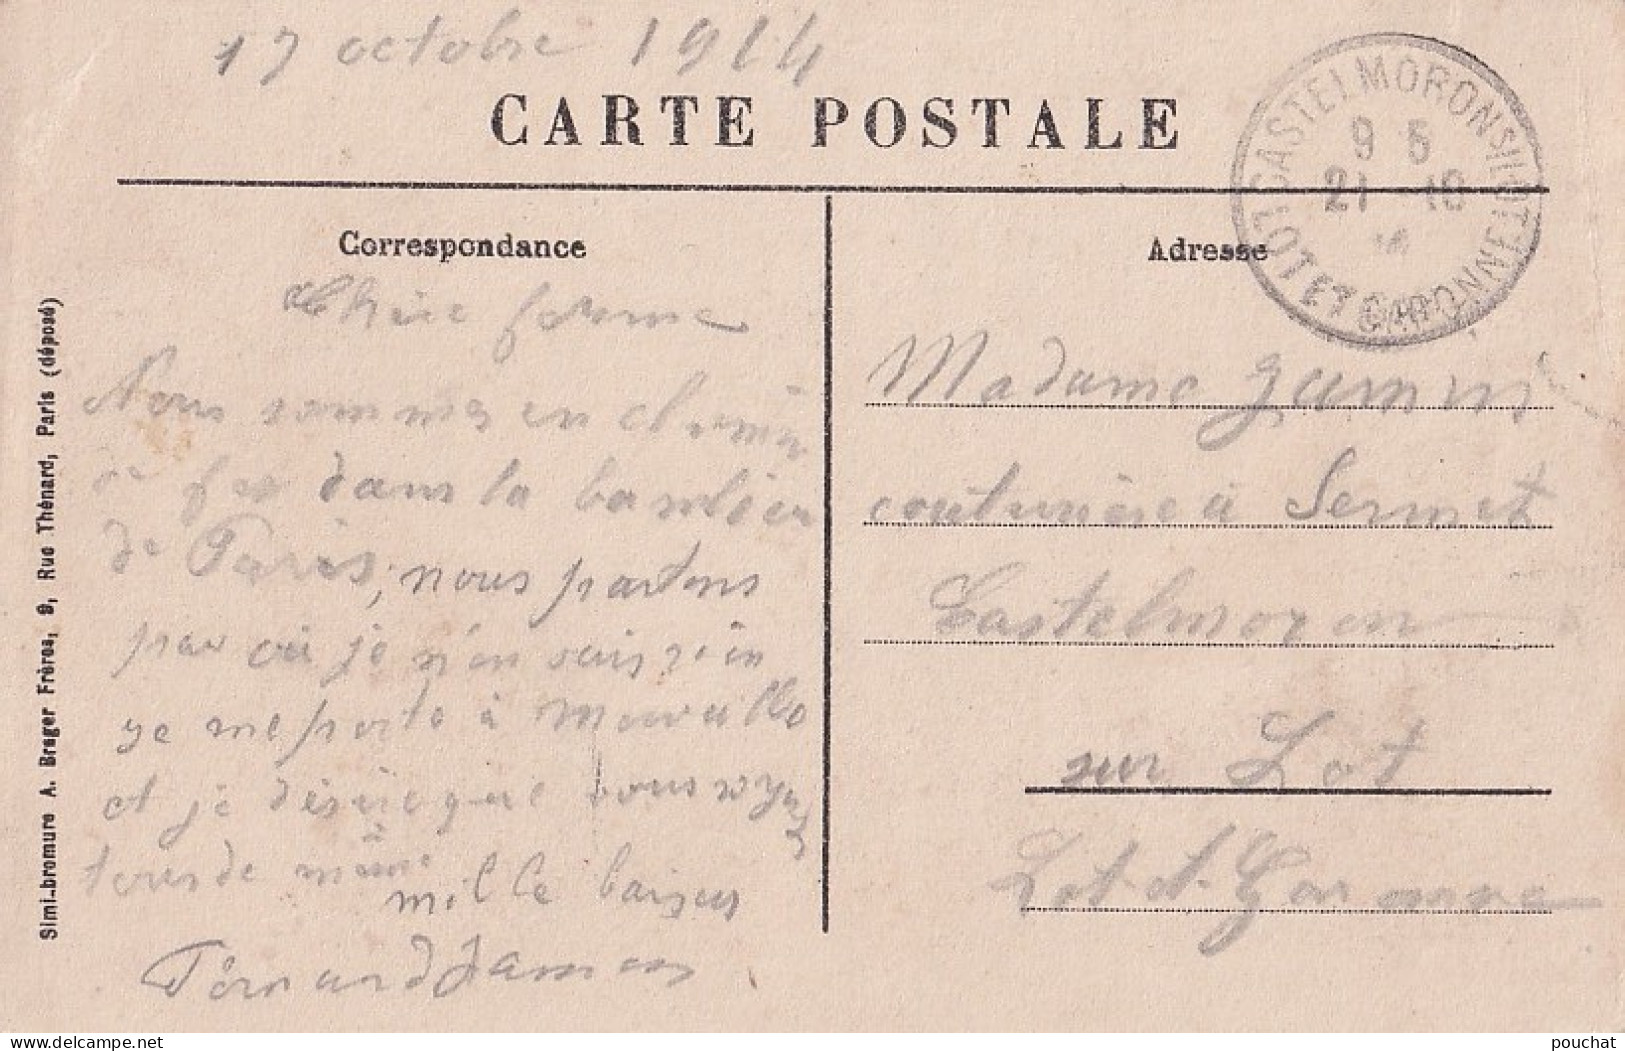 17 octobre 1914
CARTE POSTALE
CASTELMORON S/LOT
9 5
21 10
14
LOT ET GARONNE
Correspondance
Adresse
Chère femme
Nous sommes en chemin
de fer dans la banlieu
de Paris, nous partons
par où je n'en sais rien
je me porte à merveille
et je désire que vous soyez
tous de même
mille baisers
Fernand
Madame
couturière à Sermet
Castelmoron
sur Lot
Lot et Garonne
Simi-bromure A. Breger Frères, 9, Rue Thénard, Paris (déposé)
pouchat